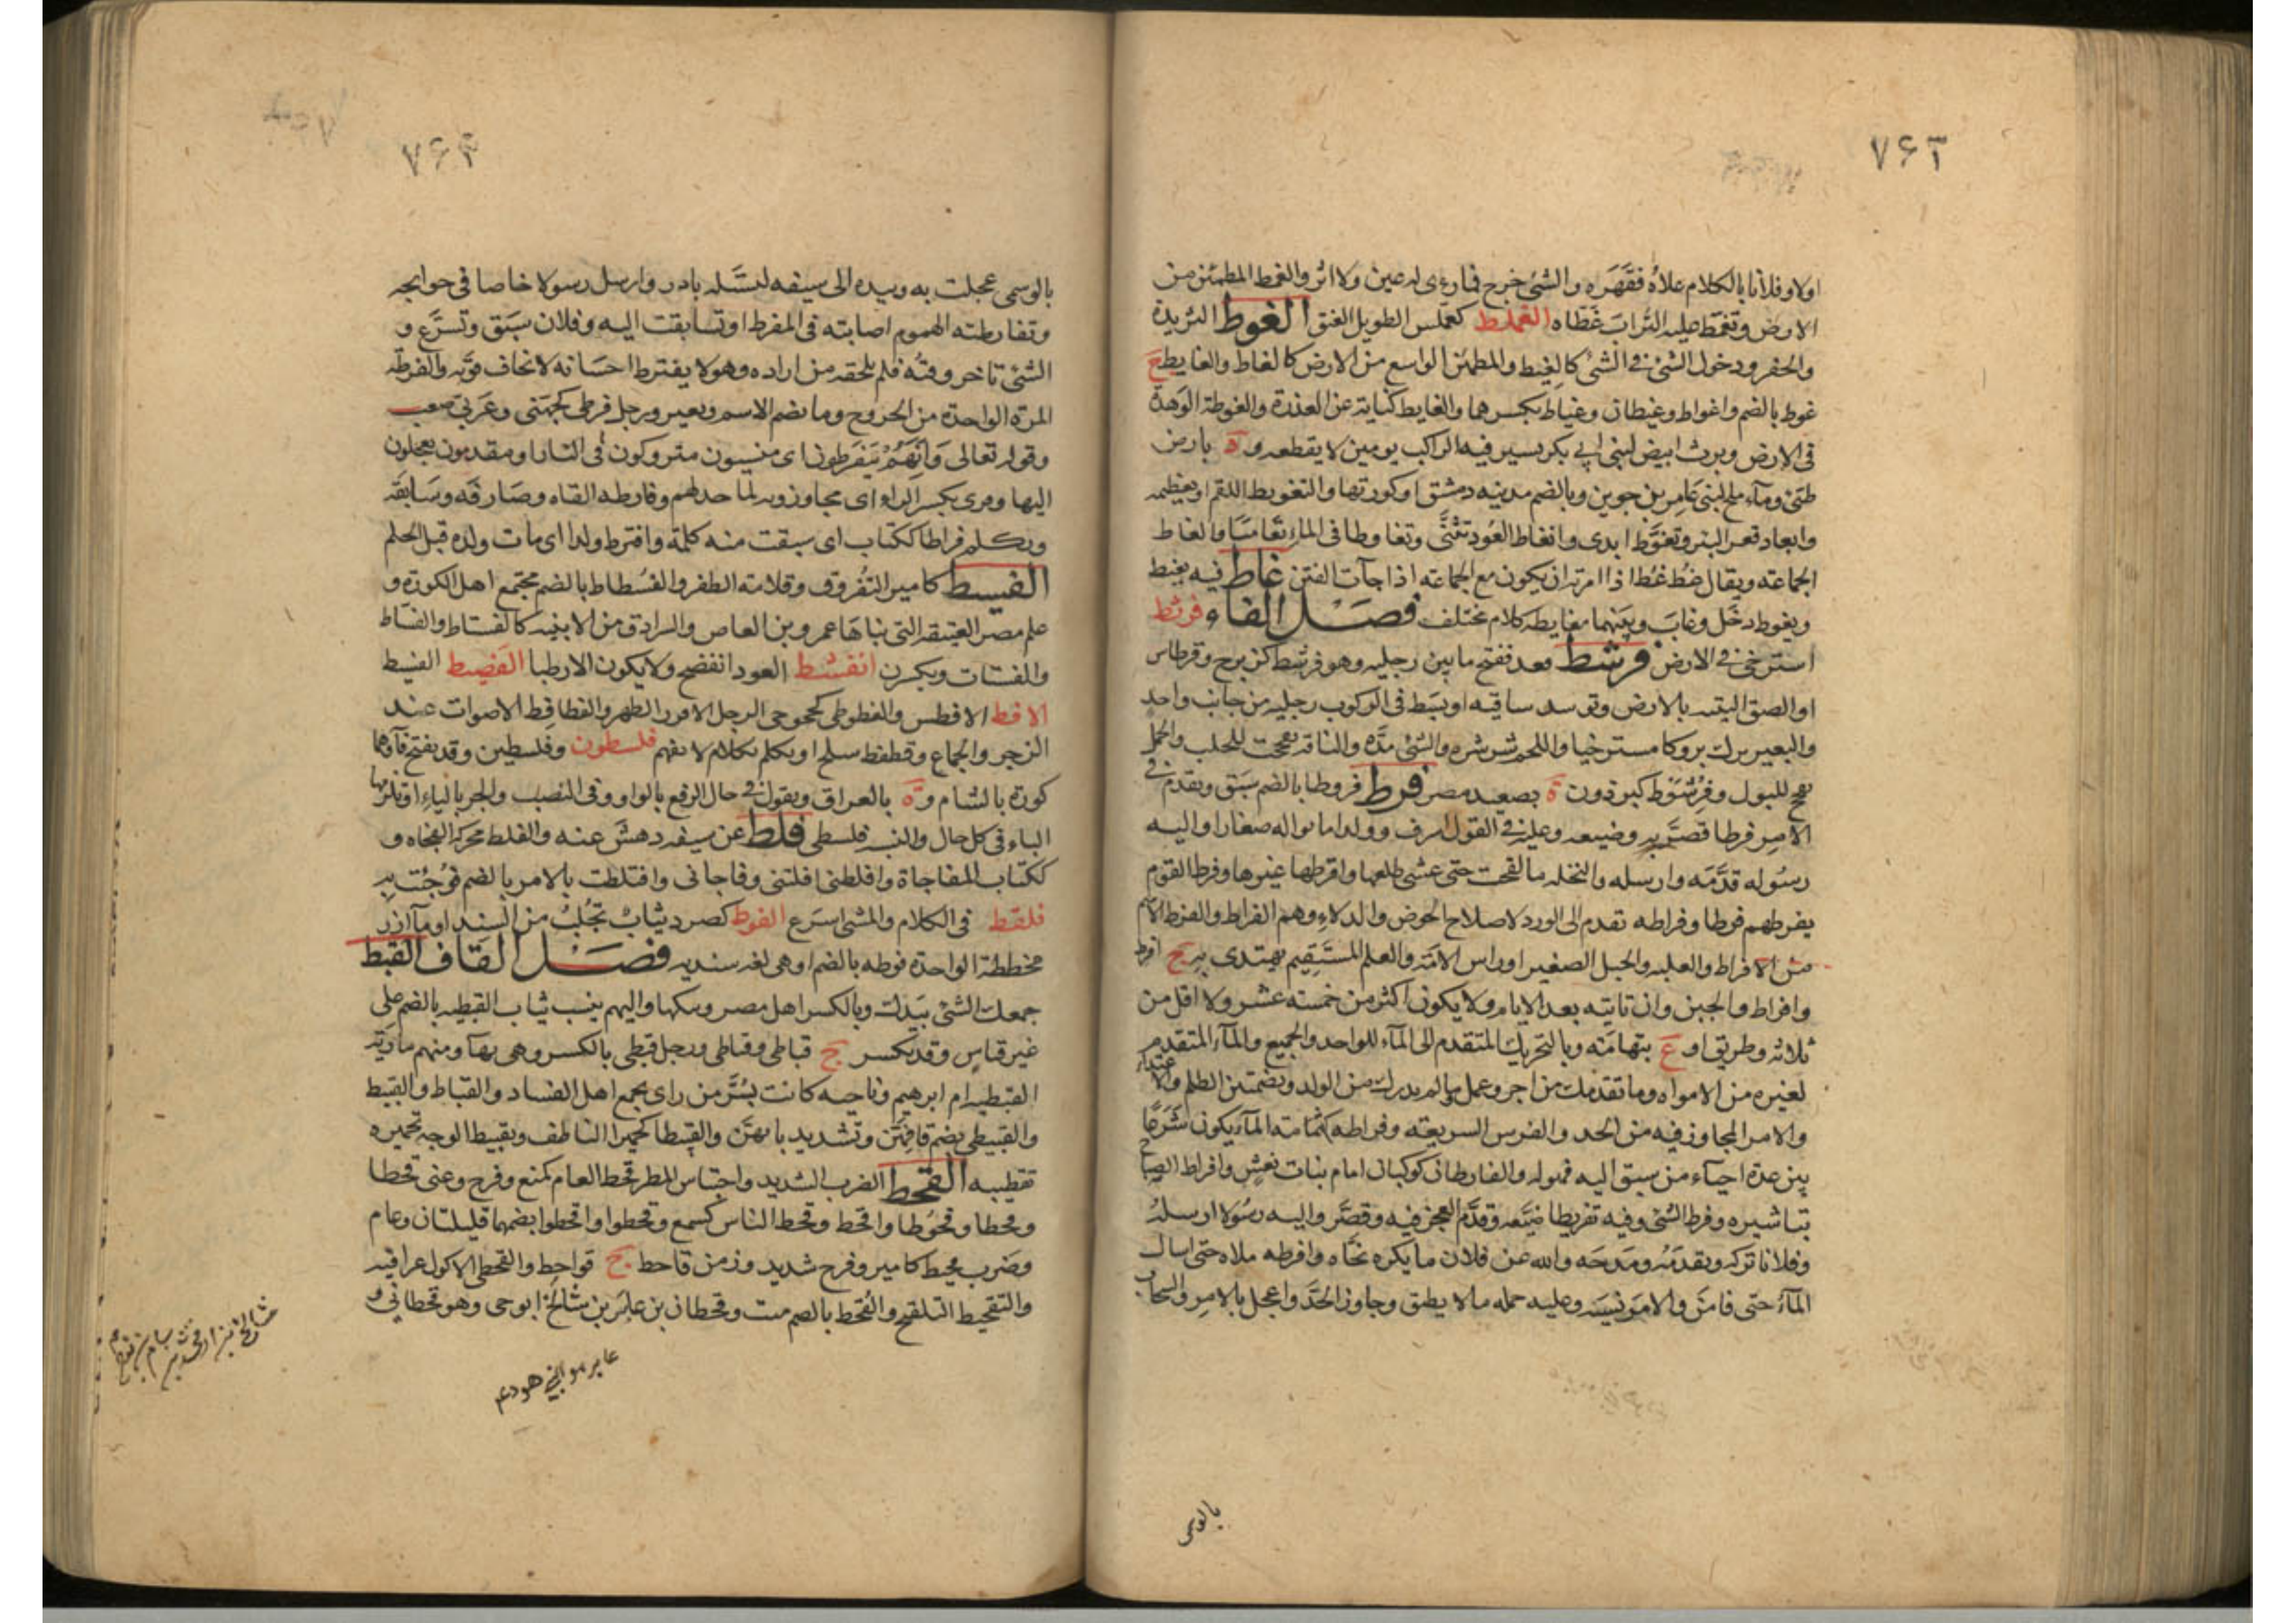 ٧٦٢
اولا وفلانا بالكلام علاه فقهره والشئ خرج فما رءى له عين ولا اثر والغمط المطمئن من
الارض وتغمط عليه التراب غطاه الغملط كعملس الطويل العنق الغوط الثريدة
والحفر ودخول الشئ فى الشئ كالغيط والمطمئن الواسع من الارض كالغاط والغايط ج
غوط بالضم واغواط وغيطان وغياط بكسرهما والغايط كناية عن العذرة والغوطة الوهدة
فى الارض وبرث ابيض لبنى ابى بكر يسير فيه الراكب يومين لا يقطعه و ة بارض
طئ وماء ملح لبنى عامر بن جوين وبالضم مدينه دمشق او كورتها والتغويط اللقم او تعظيمه
وابعاد قعر البئر وتغوط ابدى وانغاط العود تثنى وتغاوطا فى الماء تغامسا والغاط
الجماعته ويقال غط غط اذا امرته ان يكون مع الجماعته اذا جآت الفتن غاط فيه يغيط
ويغوط دخل وغاب وبينهما مغايطه كلام مختلف فصل الفاء فرثط
استرخى فى الارض فرشط قعد ففتح ما بين رجليه وهو فرشط كزبرج وقرطاس
او الصق اليتيه بالارض وتوسد ساقيه او بسط فى الركوب رجليه من جانب واحد
والبعير برك بروكا مسترخيا واللحم شرشره والشئ مده والناقه تفحجت للحلب والجمل
تفحج للبول وفرشوط كبرذون ة بصعيد مصر فرط فروطا بالضم سبق وتقدم فى
الامر فرطا قصر به وضيعه وعليه فى القول اسرف وولدا ماتوا له صغارا واليه
رسوله قدمه وارسله والنخله ما لقحت حتى عشى طلعها وافرطها غيرها وفرط القوم
يفرطهم فرطا وفراطه تقدم الى الورد لاصلاح الحوض والدلاء وهم الفراط والفرط الاسم
من الافراط والغلبه والجبل الصغير او راس الاكمه والعلم المستقيم يهتدى به ج افرط
وافراط والحين وان تاتيه بعد الايام ولا يكون اكثر من خمسته عشر ولا اقل من
ثلاثه وطريق او ع بتهامته وبالتحريك المتقدم الى الماء للواحد والجميع والماء المتقدم
لغيره من الامواه وما تقدمك من اجر وعمل وما لم يدرك من الولد وبضمتين الظلم والاعتداء
والامر المجاوز فيه من الحد والفرس السريعته وفراطه كثمامته الماء يكون شرعا
بين عدة احياء من سبق اليه فهو له والفارطان كوكبان امام بنات نعش وافراط الصباح
تباشيره وفرط الشئ وفيه تفريطا ضيعه وقدم العجز فيه وقصر واليه رسولا ارسله
وفلانا تركه وتقدمه ومدحه والله عن فلان ما يكره نحاه وافرطه ملاه حتى اسال
الماء حتى فاض والامر نسيه وعليه حمله ما لا يطيق وجاوز الحد واعجل بالامر والسحاب
بالوسمى
٧٦٣
بالوسمى عجلت به وبيده الى سيفه ليستله بادر وارسل رسولا خاصا فى حوايجه
وتفارطته الهموم اصابته فى المفرط او تسابقت اليه وفلان سبق وتسرع و
الشئ تاخر وقته فلم يلحقه من اراده وهو لا يفترط احسانه لا يخاف فوته والفرطه
المرة الواحدة من الخروج وما بضم الاسم وبعير ورجل فرطى كجهنى وعربى صعب
وقوله تعالى وانهم مفرطون اى منسيون متروكون فى النار او مقدمون معجلون
اليها وقرى بكسر الراء اى مجاوزون لما حد لهم وفارطه القاه وصادفه وسابقه
وتكلم فراطا ككتاب اى سبقت منه كلمة وافترط ولدا اى مات ولده قبل الحلم
الفسيط كامير الثفروق وقلامته الظفر والفسطاط بالضم مجتمع اهل الكورة و
علم مصر العتيقه التى بناها عمرو بن العاص والسرادق من الابنيه كالفستاط والفساط
والفستات ويكسرن انفشط العود انفضح ولا يكون الا رطبا الفضيط الفسيط
الافط الافطس والفطوطى كخجوجى الرجل الافزر الظهر والفطافط الاصوات عند
الزجر والجماع وفطفط سلح او تكلم بكلام لا يفهم فلسطون وفلسطين وقد يفتح فآؤهما
كورة بالشام و ة بالعراق وتقول فى حال الرفع بالواو وفى النصب والجر بالياء او تلزمها
الياء فى كل حال والنسبه فلسطى فلط عن سيفه دهش عنه والفلط محركه الفجاه و
ككتاب المفاجاة وافلطنى افلتنى وفاجانى وافتلطت بالامر بالضم فوجئت به
فلقط فى الكلام والمشى اسرع الفوط كصرد ثياب تجلب من السند او مآزر
مخططة الواحدة فوطه بالضم او هى لغه سنديه فصل القاف القبط
جمعك الشئ بيدك وبالكسر اهل مصر وبنكها واليهم ينسب ثياب القبطيه بالضم على
غير قياس وقد يكسر ج قباطى وقباطى ورجل قبطى بالكسر وهى بهآ ومنهم ماريه
القبطيه ام ابرهيم وناحيه كانت بسر من راى يجمع اهل الفساد والقباط والقبيط
والقبيطى بضم قافهن وتشديد بائهن والقبيطا كحميرا الناطف وتقبيط الوجه تخميره
تقطيبه القحط الضرب الشديد واحتباس المطر قحط العام كمنع وفرح وعنى قحطا
وقحطا وقحوطا واقحط وقحط الناس كسمع وقحطوا واقحطوا بضمهما قليلتان وعام
وضرب قحيط كامير وفرح شديد وزمن قاحط ج قواحط والقحطى الاكول عراقيه
والتقحيط التلقيح والقحط بالضم نبت وقحطان بن عابر بن شالخ ابو حى وهو قحطانى و
عابر هو النبى هود عم
شالخ بن ارفخشد بن سام بن نوح عم